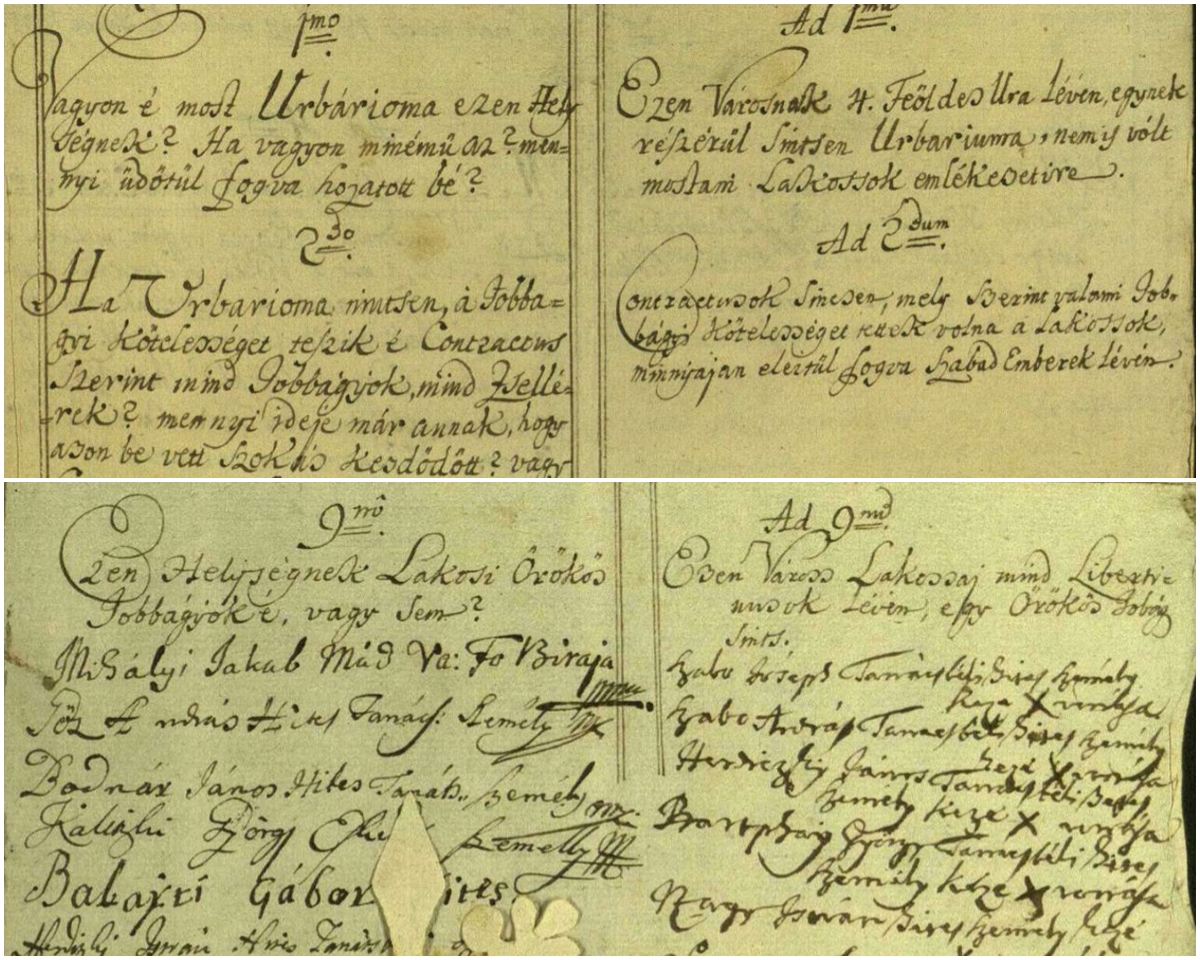 1mo
Vagyon é most Urbárioma ezen Hely
ségnek? Ha vagyon minémű az? men=
nyi üdőtül fogva hozatott bé?
2do
Ha Urbarioma nintsen, á Jobba=
gyi kötelességet teszik é Contractus
Szerint mind Jobbágyok, mind Zsellé=
=rek? mennyi ideje már annak, hogy
ason be vett szokás kesdődött? vagy
Ad 1mu
Ezen Városnak 4. Feöldes Ura lévén, egynek
részérül sintsen Urbariuma, nem is vólt
mostani Lakossok emlékezetire.
Ad 2dum
Contractusok sincsen, mely szerint valami Job-
bágyi kötelességet tettek volna á Lakossok,
minnyájan eleitül fogva szabad Emberek lévén.
9nô
Ezen Helységnek Lakosi Örökös
Jobbágyok é, vagy sem?
Mihályi Jakab Mád Va: Fo Biraja
András Hites Tanács: Személy
Bodnár János Hites Tanáts. személy
György személly
Babajti Gábor ites
Ad 9num
Esen Város Lakossaj mind Liberti-
nusok lévén, egy Örökös Jobágy
sints.
Szabo Jóseph Tanácsbéli Hites személy
keze X vonása
Szabo András Tanacsbéli Hites személy
keze X vonása
János Tanácsbéli Hites
személy keze X vonása
György Tanacsbéli Hites
személy keze X vonása
Nagy István Hites személy kezé